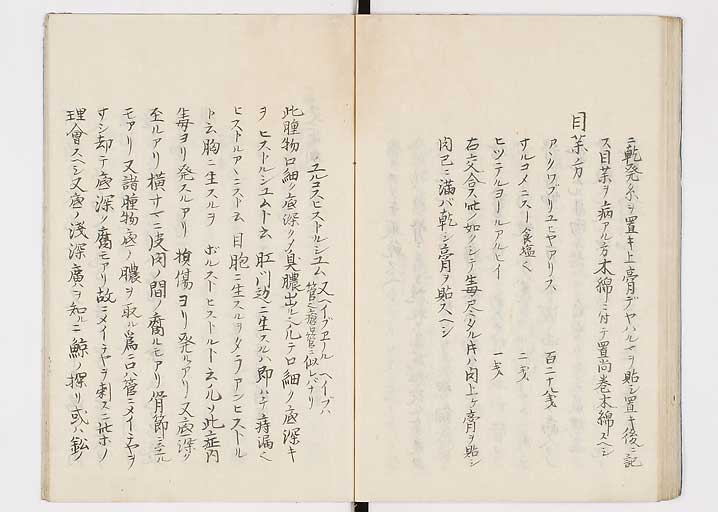 ニ乾発糸ヲ置キ上膏デヤハルマヲ貼シ置キ後ニ記
ス目薬ヲ病アル方木綿ニ付テ置尚巻木綿スヘシ
目薬方
アンクワブリユヒヤアリス 百二十九戔
サルコメニスー食塩也 二戔
ヒツテルヨールアルヒイ 一戔
右交合ス此ノ如クシテ毒尽タル片ハ肉上ケ膏ヲ貼シ
肉已ニ満バ乾シ膏ヲ貼スヘシ
ユルコスヒストルジユム 又ヘイプヱール ヘイプハ管也瘡口管ニ似レバナリ
此腫物口細ク底深クメ臭膿出ルヘルテロ細ク底深キ
ヲ ヒストルジユムト云 肛門辺ニ生スルハ即ハチ痔漏也
ヒストルアーニスト云 目胞ニ生スルヲタラアンヒストル
ト云胸ニ生スルヲ ボルストヒストルト云凡ソ此症内
毒ヨリ発スルアリ 損傷ヨリ発ルアリ 又底深ク
至ルアリ横サマニ皮肉ノ間ノ腐ルモアリ 骨節ニ至ル
モアリ 又諸腫物底ノ膿ヲ取ル為ニ口ハ管ニメイテヤヲ
サシ却テ底深ク腐モアリ故ニメイテヤヲ刺スニ此ホノ
理會スヘシ又底ノ浅深廣ヲ知ルニ鯨ノ探リ或ハ鉛ノ